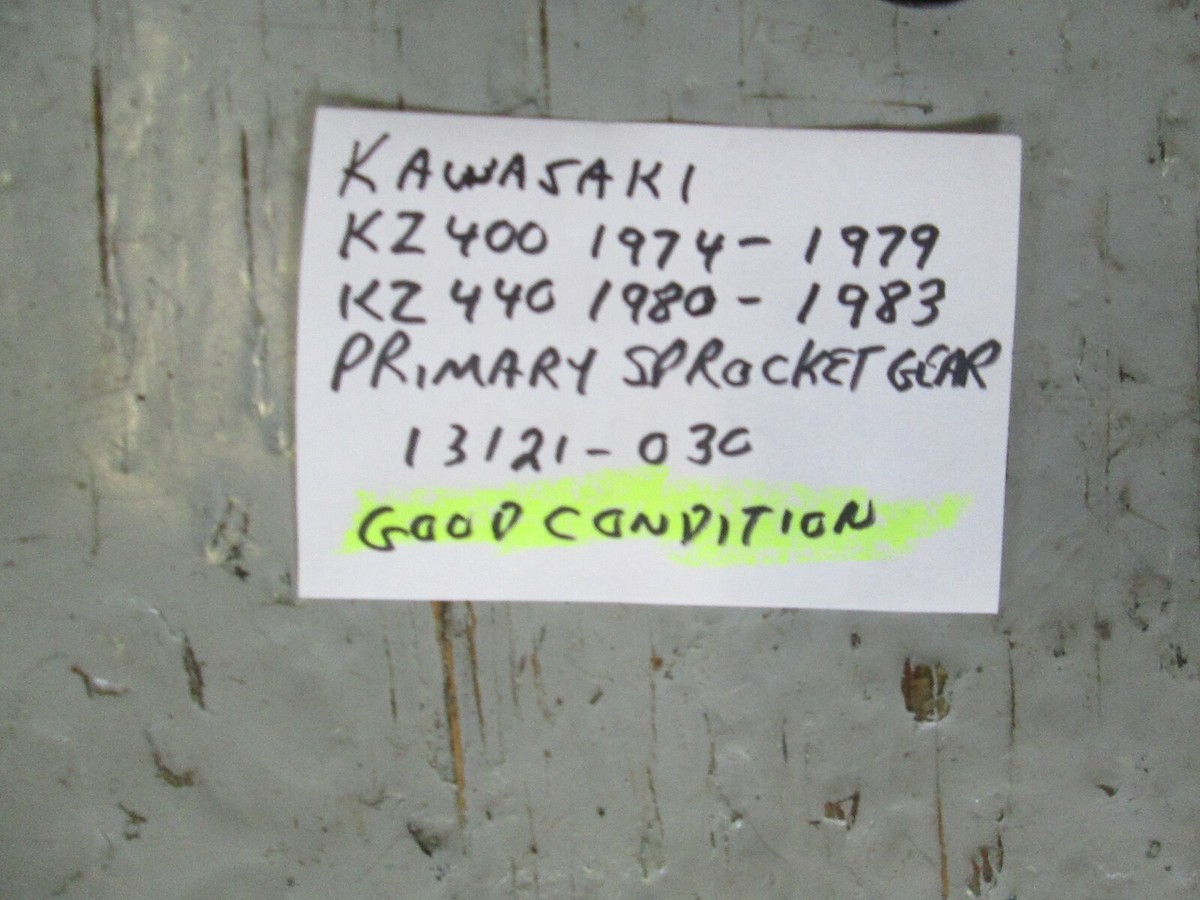 KAWASAKI
KZ 400 1974 - 1979
KZ 440 1980 - 1983
PRIMARY SPROCKET GEAR
13121-030
GOOD CONDITION